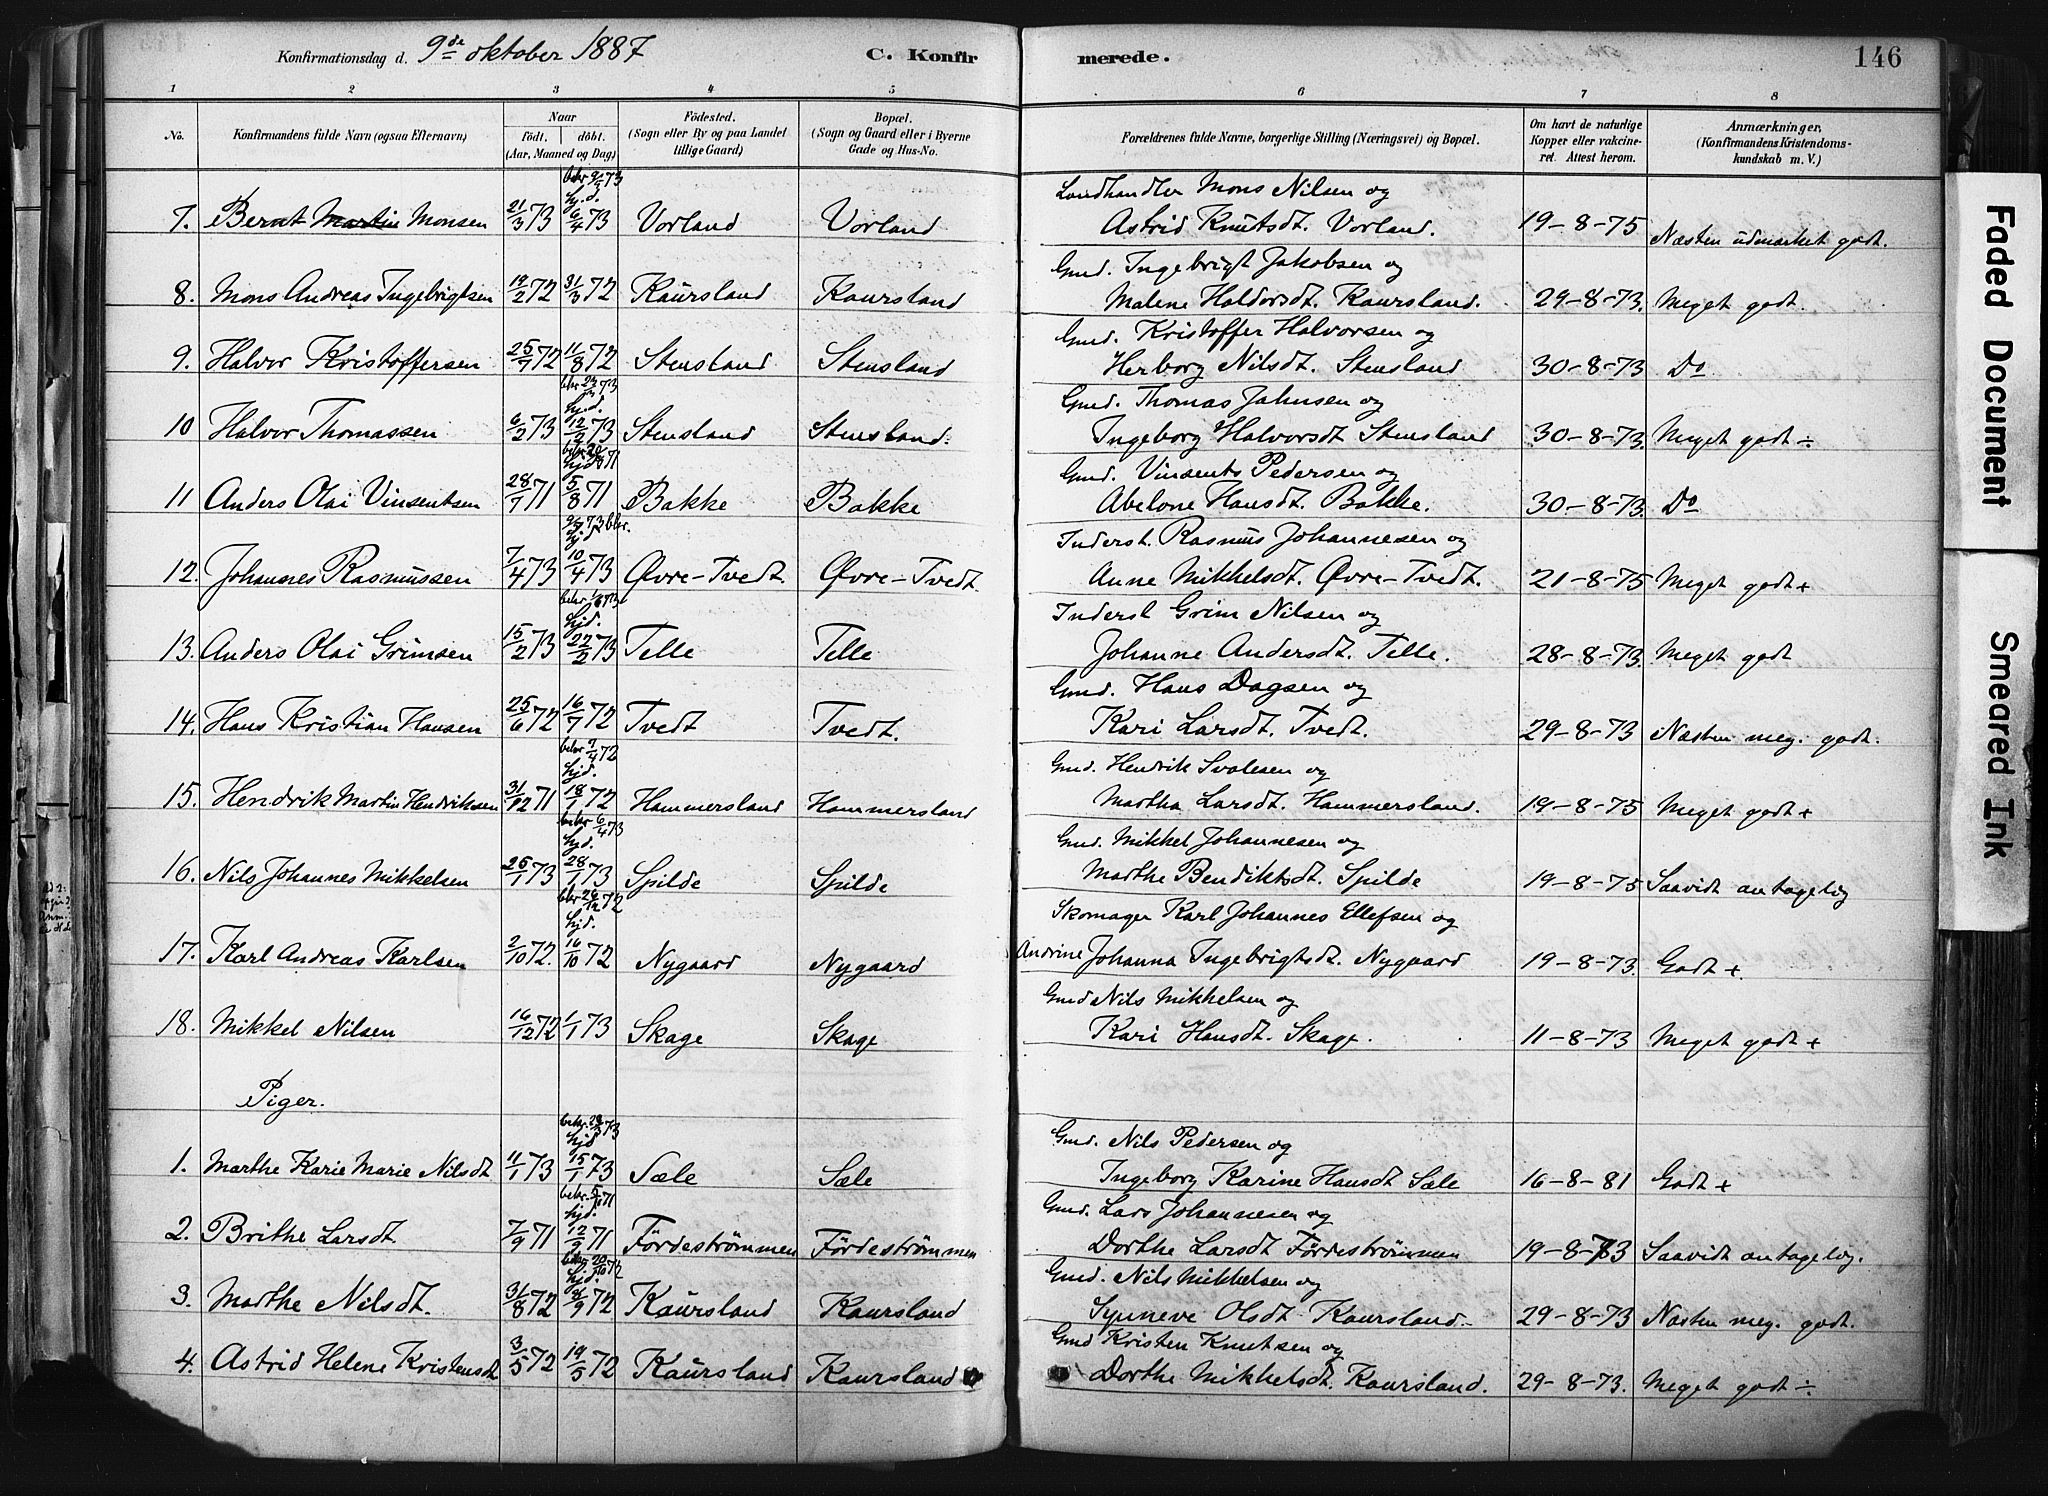 Konfirmationsdag d. 9de oktober 1887 C. Konfirmerede. 146
1 2 3 4 5 6 7 8
No. Konfirmandens fulde Navn (ogsaa Efternavn) Naar födt. döbt. (Aar, Maaned og Dag) Födested. (Sogn eller By og paa Landet tillige Gaard) Bopæl. (Sogn og Gaard eller i Byerne Gade og Hus-No. Forældrenes fulde Navne, borgerlige Stilling (Næringsvei) og Bopæl. Om havt de naturlige Kopper eller vakcineret. Attest herom. Anmærkninger, (Konfirmandens Kristendomskundskab m. V.)
bkr 9/5 73
hj.d. Landhandler Mons Nilsen og
7. Bernt Martin Monsen 21/3 73 6/4 73 Vorland Vorland Astrid Knutsdt. Vorland. 19-8-75 Næsten udmærket godt.
Gmd. Ingebrigt Jakobsen og
8. Mons Andreas Ingebrigtsen 19/2 72 31/3 72 Kaursland Kaursland Malene Haldorsdt. Kaursland. 29-8-73. Meget godt.
Gmd. Kristoffer Halvorsen og
9. Halvor Kristoffersen 25/7 72 11/8 72 Stensland Stensland Herborg Nilsdt. Stensland 30-8-73 Do
hj.d. Gmd. Thomas Jahnsen og
10 Halvor Thomassen 6/2 73 12/2 73 Stensland Stensland. Ingeborg Halvorsdt Stensland 30-8-73. Meget godt ÷
hjd. Gmd. Vinsents Pedersen og
11 Anders Olai Vinsentsen 28/7 71 5/8 71 Bakke Bakke Abelone Hansdt. Bakke. 30-8-73. Do
hjd. Inderst. Rasmus Johannesen og
12. Johannes Rasmussen 7/4 73 10/4 73 Øvre-Tvedt. Øvre-Tvedt. Anne Mikkelsdt. Øvre-Tvedt. 21-8-75 Meget godt +
hjd. Inderst Grim Nilsen og
13. Anders Olai Grimsen 15/2 73 22/2 73 Telle Telle Johanne Andersdt. Telle. 28-8-73. Meget godt
Gmd. Hans Dagsen og
14. Hans Kristian Hansen 25/6 72 16/7 72 Tvedt Tvedt. Kari Larsdt. Tvedt. 29-8-73 Næsten meg. godt.
bekr 7/4 72
hjd. Gmd. Hendrik Svalesen og
15. Hendrik Martin Hendriksen 31/12 71 18/1 72 Hammersland Hammersland Martha Larsdt. Hammersland. 19-8-75 Meget godt +
bekr 6/4 73
hjd. Gmd. Mikkel Johannesen og
16. Nils Johannes Mikkelsen 25/1 73 28/1 73 Spilde Spilde Marthe Bendiktsdt. Spilde 19-8-75 Saavidt antagelig
bkr 26/12 72
hjd. Skomager Karl Johannes Ellefsen og
17. Karl Andreas Karlsen 2/10 72. 16/10 72 Nygaard Nygaard Andrine Johanna Ingebrigtsdt. Nygaard 19-8-73. Godt +
Gmd Nils Mikkelsen og
18. Mikkel Nilsen 16/12 72 1/1 73 Skage Skage Kari Hansdt. Skage. 11-8-73 Meget godt +
Piger.
hjd Gmd. Nils Pedersen og
1. Marthe Karie Marie Nilsdt 11/1 73 15/1 73 Sæle Sæle Ingeborg Karine Hansdt Sæle 16-8-81 Godt +
hjd. Gmd. Lars Johannesen og
2. Brithe Larsdt 7/9 71 12/9 71 Fördeströmmen Fördeströmmen Dorthe Larsdt Fördeströmmen 19-8-73 Saavidt antagelig.
bekr. 20/10 72
hjd. Gmd. Nils Mikkelsen og
3. Marthe Nilsdt. 31/8 72 8/9 72 Kaursland Kaursland Synneve Olsdt Kaursland. 29-8-73 Næsten meg. godt.
Gmd Kristen Knutsen og
4. Astrid Helene Kristensdt 3/5 72 19/5 72 Kaursland Kaursland Dorthe Mikkelsdt. Kaursland. 29-8-73. Meget godt ÷
Faded Document
Smeared Ink